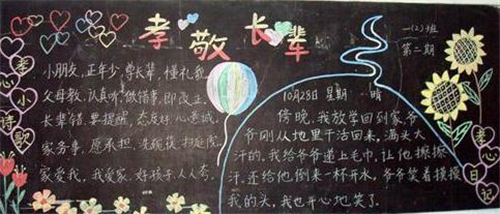 孝敬长辈
一(2)班
第二期
孝心小诗歌
小朋友,正年少,尊长辈,懂礼貌。
父母教,认真听,做错事,即改正。
长辈错,要提醒,态度好,心意诚。
家务事,愿承担,洗碗筷,扫庭院。
家爱我,我爱家,好孩子,人人夸。
10月28日 星期 晴
傍晚,我放学回到家,爷
爷刚从地里干活回来,满头大
汗的,我给爷爷递上毛巾,让他擦擦
汗,还给他倒来一杯开水,爷爷笑着摸摸
我的头,我也开心地笑了。
孝心日记